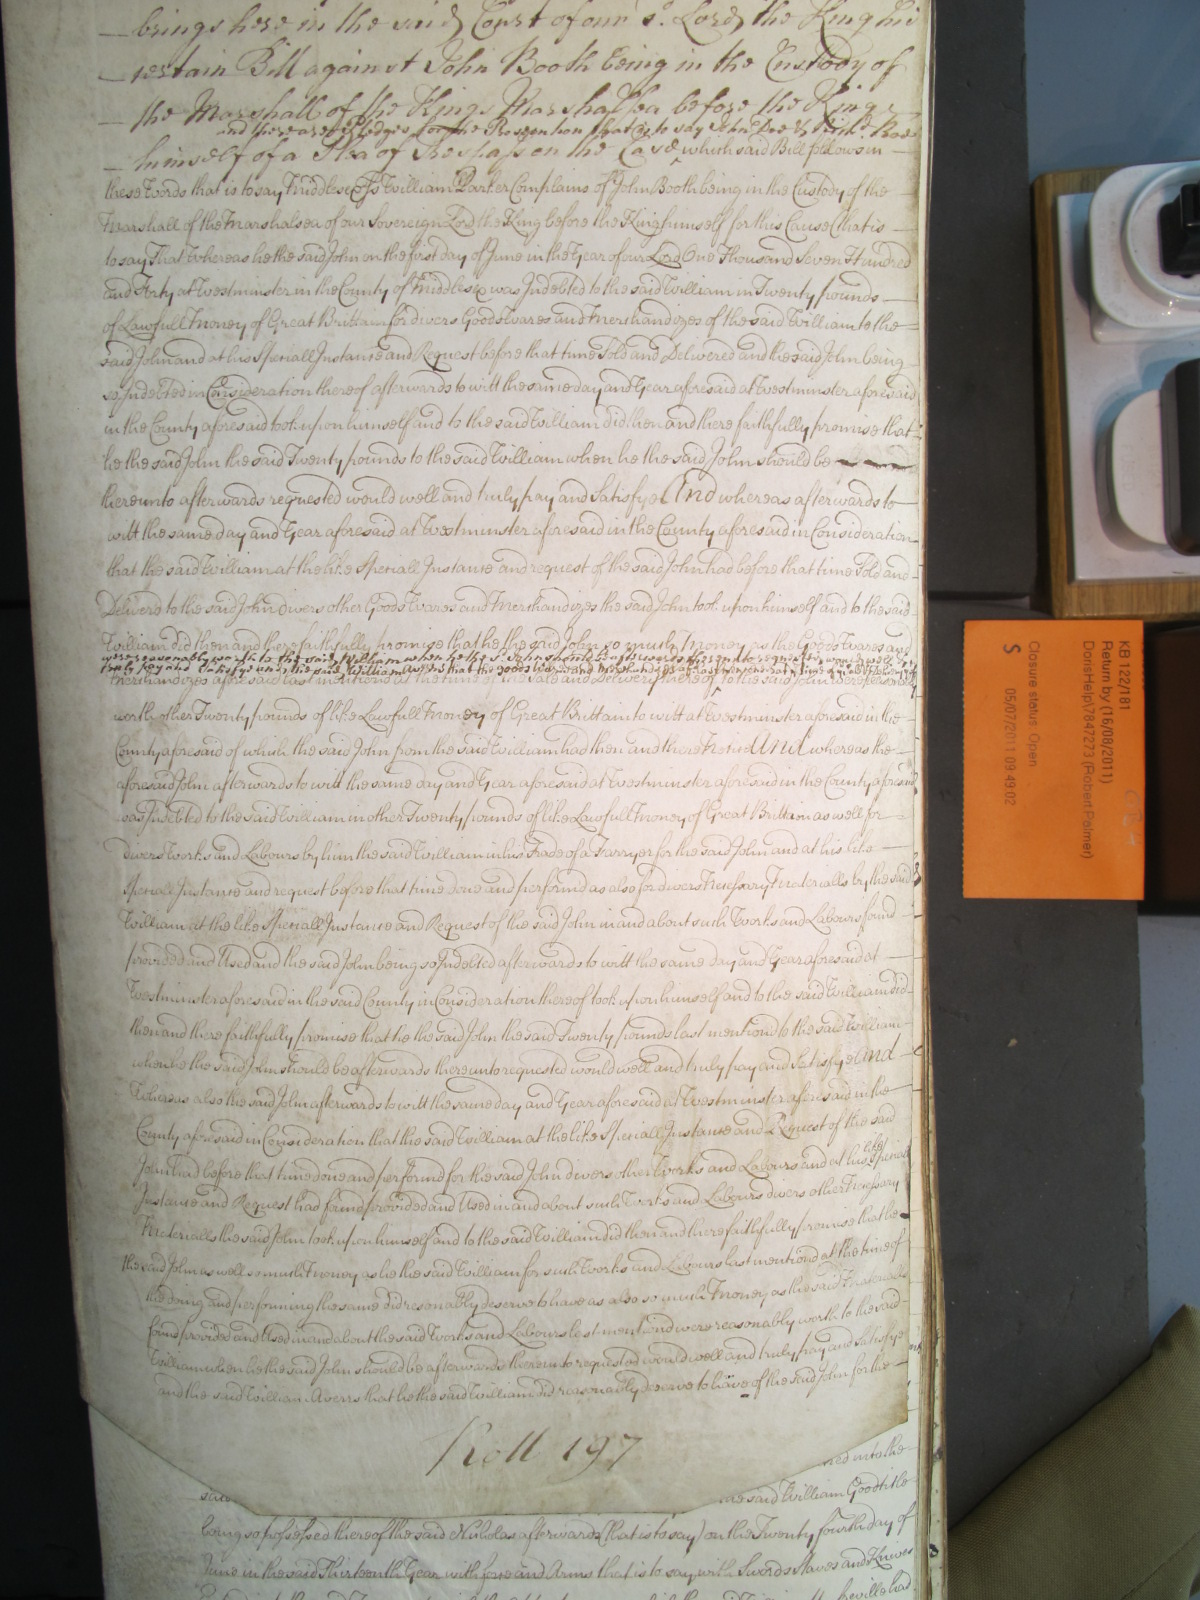 brings here in the said Court of our sd. Lord the King his
certain Bill against John Booth being in the Custody of
the Marshall of the Kings Marshalsea before the King
and there are Pledges for the Prosecution that is to say John Doe & Richd. Roe
himself of a Plea of Trespass on the Case which said Bill follows in
these Words that is to say Middlesex ss William Parker Complains of John Booth being in the Custody of the
Marshall of the Marshalsea of our Sovereign Lord the King before the King himself for this Cause that is
to say That Whereas he the said John on the first day of June in the Year of our Lord One Thousand Seven Hundred
and Forty at Westminster in the County of Middlesex was Indebted to the said William in Twenty pounds
of Lawfull Money of Great Brittain for divers Goods Wares and Merchandizes of the said William to the
said John and at his Speciall Instance and Request before that time Sold and Delivered and the said John being
so Indebted in Consideration thereof afterwards to witt the same day and Year aforesaid at Westminster aforesaid
in the County aforesaid took upon himself and to the said William did then and there faithfully promise that
he the said John the said Twenty pounds to the said William when he the said John should be
thereunto afterwards requested would well and truly pay and Satisfye And whereas afterwards to
witt the same day and Year aforesaid at Westminster aforesaid in the County aforesaid in Consideration
that the said William at the like Speciall Instance and request of the said John had before that time Sold and
Deliverd to the said John divers other Goods Wares and Merchandizes the said John took upon himself and to the said
William did then and there faithfully promise that he the said John so much Money as the Goods Wares and
were reasonably worth to the said William when he the sd. John should be afterwards thereunto requested would well &
truly pay and Satisfy and the said William avers that the goods wares and merchandizes last mentioned at the time of the
Merchandizes aforesaid last mentiond at the time of the Sale and Delivery thereof to the said John
worth other Twenty pounds of like Lawfull Money of Great Brittain to witt at Westminster aforesaid in the
County aforesaid of which the said John from the said William had then and there Notice And whereas the
aforesaid John afterwards to witt the same day and Year aforesaid at Westminster aforesaid in the County aforesaid
was Indebted to the said William in other Twenty pounds of like Lawfull Money of Great Brittain as well for
divers Works and Labours by him the said William in his Trade of a Farryer for the said John and at his like
Speciall Instance and request before that time done and performd as also for divers Necessary Materialls by the said
William at the like Speciall Instance and Request of the said John in and about such Works and Labours found
provided and Used and the said John being so Indebted afterwards to witt the same day and Year aforesaid at
Westminster aforesaid in the said County in Consideration thereof took upon himself and to the said William did
then and there faithfully promise that he the said John the said Twenty pounds last mentiond to the said William
when he the said John should be afterwards thereunto requested would well and truly pay and Satisfye And
Whereas also the said John afterwards to witt the same day and Year aforesaid at Westminster aforesaid in the
County aforesaid in Consideration that the said William at the like Speciall Instance and Request of the said
John had before that time done and performd for the said John divers other Works and Labours and at his like Speciall
Instance and Request had found provided and Used in and about such Works and Labours divers other Necessary
Materialls the said John took upon himself and to the said William did then and there faithfully promise that he
the said John as well so much Money as he the said William for such Works and Labours last mentiond at the time of
the doing and performing the same did reasonably deserve to have as also so much Money as the said Materialls
found provided and Used in and about the said Works and Labours last mentiond were reasonably worth to the said
William when he the said John should be afterwards thereunto requested would well and truly pay and Satisfye
and the said William Averrs that he the said William did reasonably deserve to have of the said John for the
Roll 197
ned into the
said
me said William Goodtitle
being so possessed thereof the said Nicholas afterwards (that is to say) on the Twenty fourth day of
June in the said Thirteenth Year with force and Arms that is to say with Swords Staves and Knives
KB 122/181
Return by (16/08/2011)
DorisHelp\7847273 (Robert Palmer)
Closure status: Open
S
05/07/2011 09:49:02